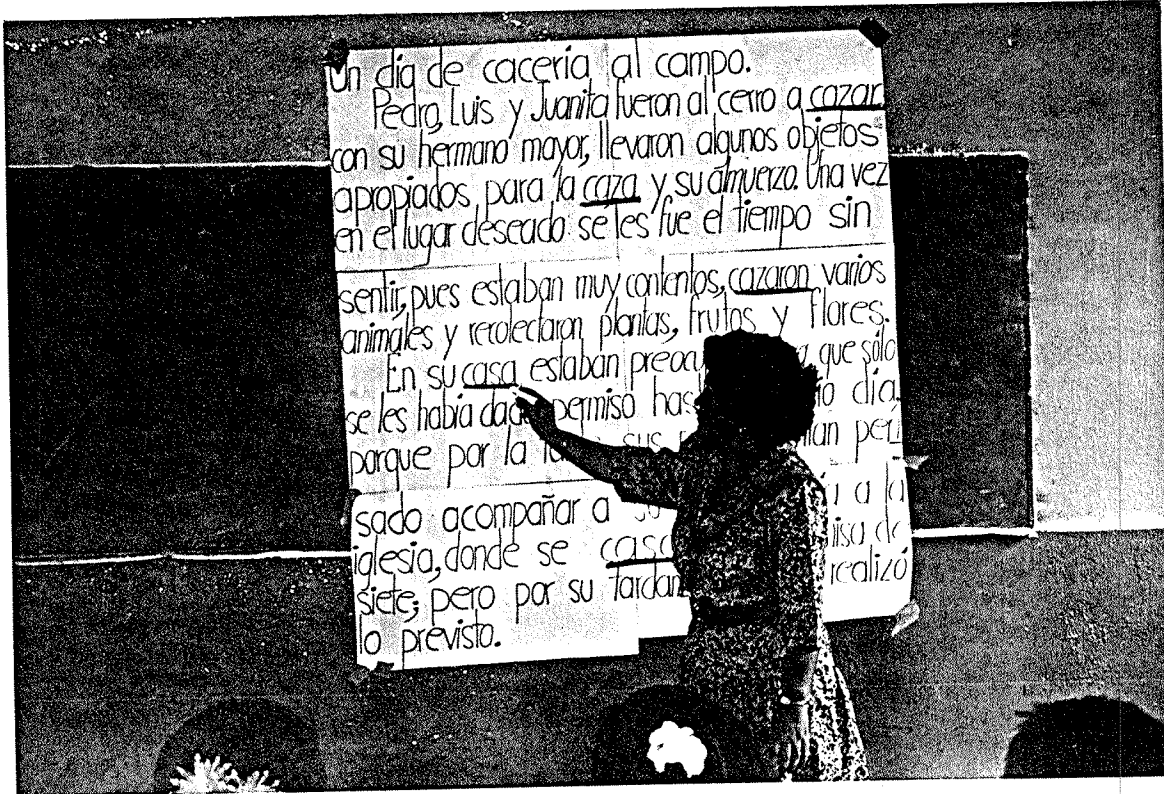 Un día de cacería al campo.
Pedro, Luis y Juanita fueron al cerro a cazar
con su hermano mayor, llevaron algunos objetos
apropiados para la caza y su almuerzo. Una vez
en el lugar deseado se les fue el tiempo sin
sentir, pues estaban muy contentos, cazaron varios
animales y recolectaron plantas, frutos y flores.
En su casa estaban que sólo
se les había permiso día,
porque por la sus
sado acompañar a a la
iglesia, donde se de
siete; pero por su realizó
lo previsto.